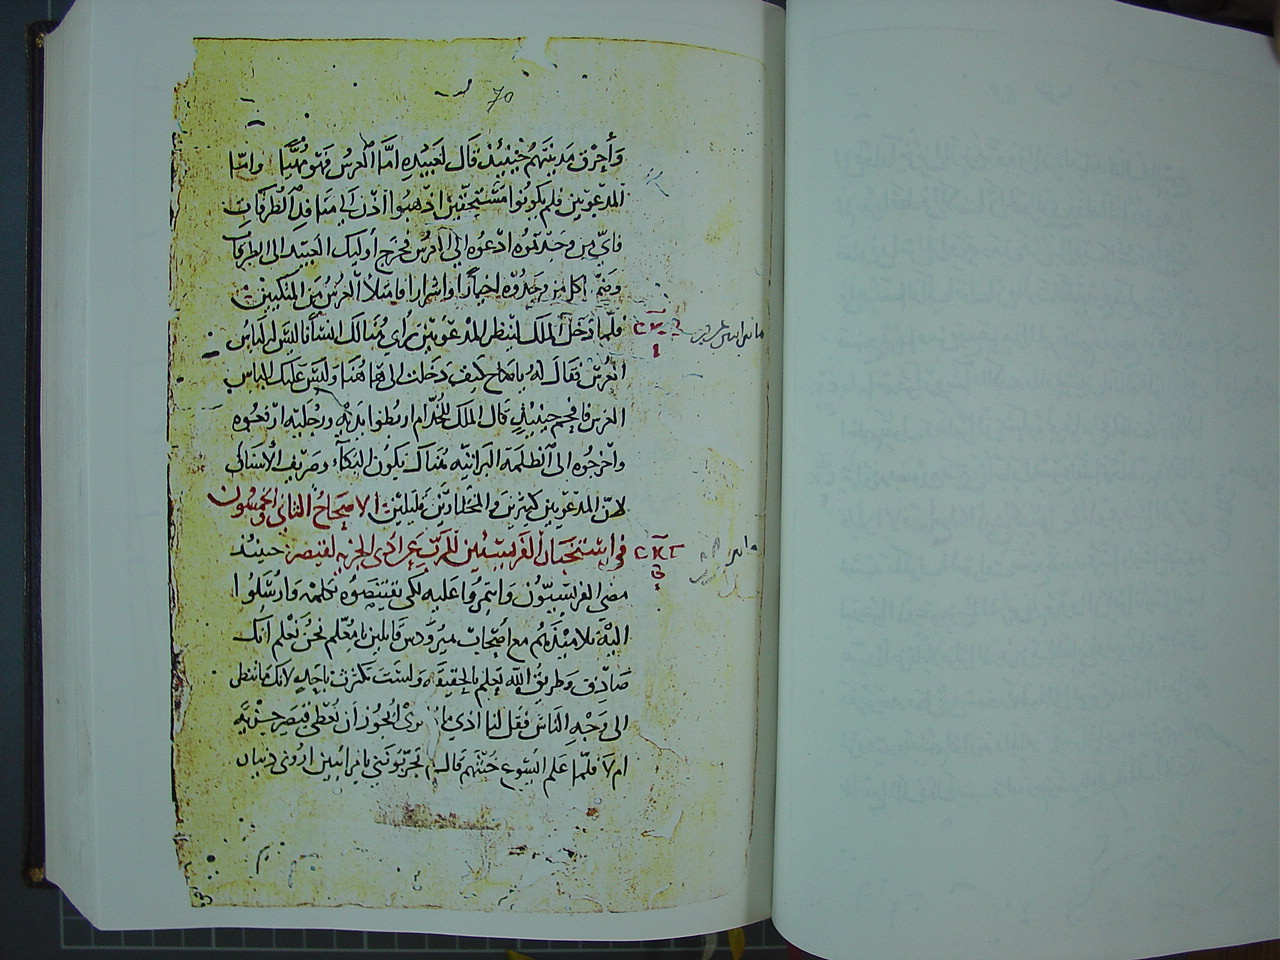 70
وأحرق مدينتهم حينئذ قال لعبيده اما العرس فهو مهيأ واما
المدعوين فلم يكونوا مستحقين اذهبوا اذن الى منافد الطرقات
فاي من وجدتموه ادعوه الى العرس فخرج أوليك العبيد الى الطرقات
وضم كل من وجدوه اخيارا واشرارا فامتلأ العرس من المتكيين
فلما دخل الملك لينظر المدعوين رأي هنالك انسانا ليس لابس
العرس فقال له يا صاح كيف دخلت الى هاهنا وليس عليك لباس
العرس فافحم حينيذ قال الملك للخدام اربطوا يديه ورجليه ارفعوه
واخرجوه الى الظلمة البرانيه هناك يكون البكاء وصريف الأسنان
لان المدعوين كثيرين والمختارين قليلين الاصحاح الثاني والخمسون
في استخبار الفريسيين للرب عن اداى الجزيه لقيصر حينيذ
مضى الفريسيون وتامروا عليه لكي يقتنصوه بكلمة وارسلوا
اليه تلاميذهم مع اصحاب هيرودس قايلين يا معلم نحن نعلم انك
صادق وطريق الله تعلم بالحقيقه وليست تكترث باحد لانك ما تنظر
الى وجه الناس فقل لنا اذي ترى ايجوز ان يعطى قيصر جزيه
ام لا فلما علم ايسوع خبثهم قال لم تجربونني يا مرائيين اروني دينار